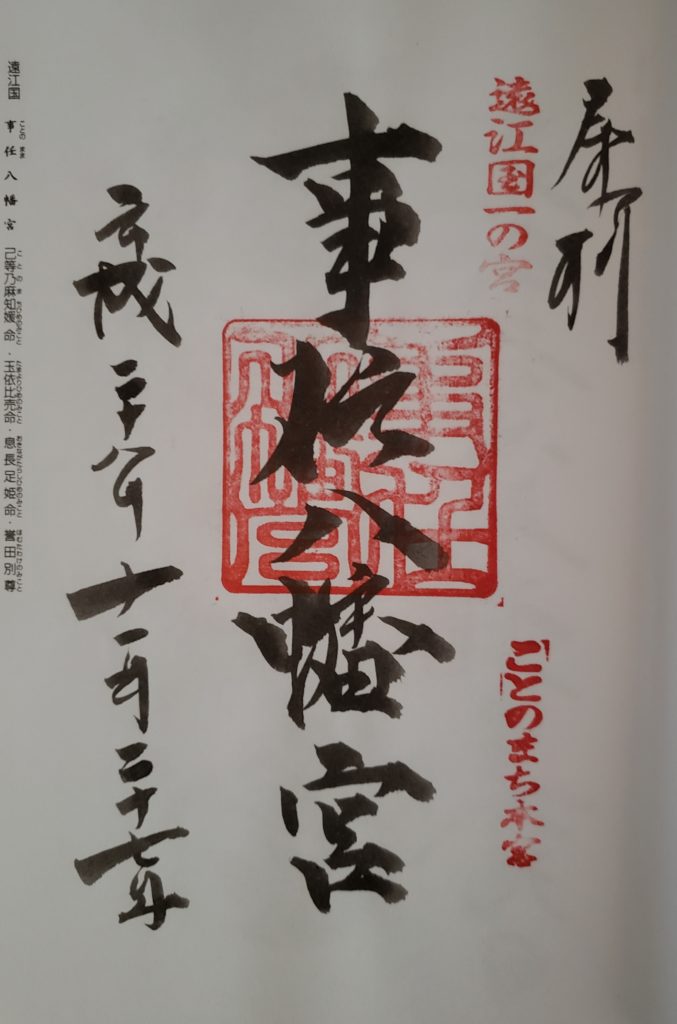 奉拝
遠江国一の宮
ことのまち本宮
事任八幡宮
事任八幡宮
平成二十八年十一月二十七日
遠江国 事任八幡宮 己等乃麻知媛命・玉依比売命・息長足姫命・譽田別尊